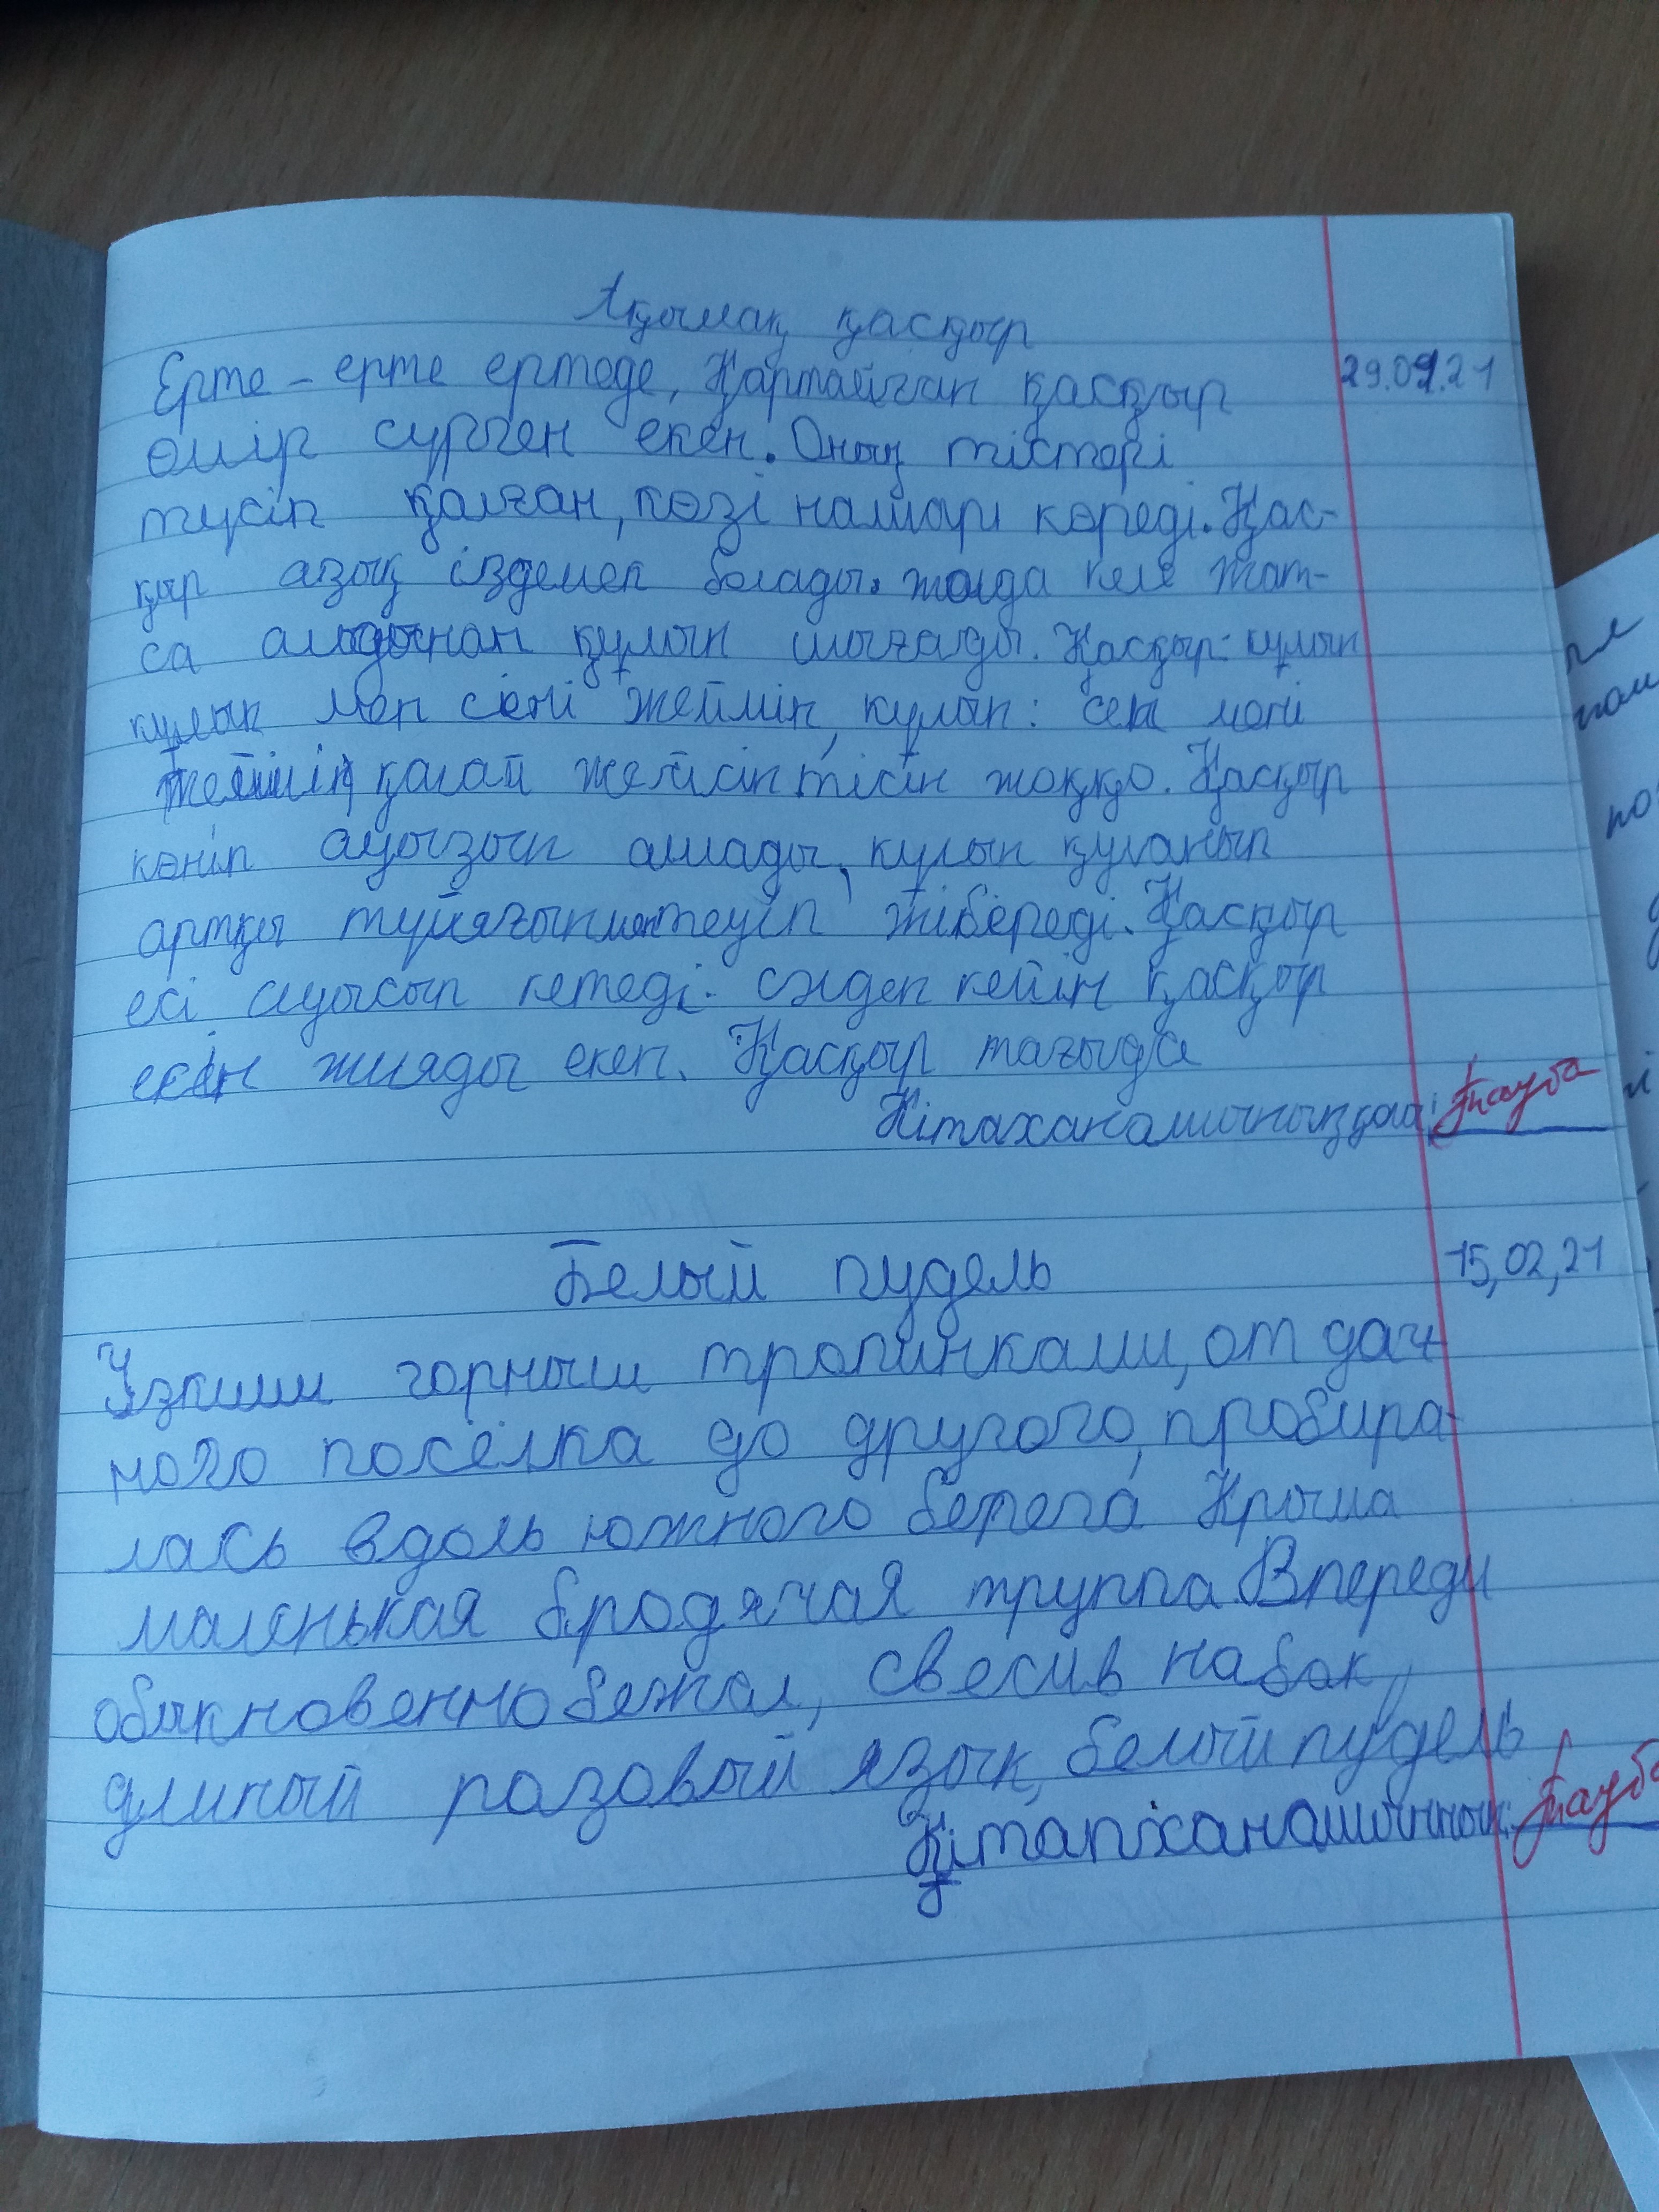 Ақымақ қасқыр
Ерте - ерте ертеде, Қартайған қасқыр
29.01.21
өмір сүрген екен. Оның тістері
түсіп қалған, көзі нашар көреді. Қас-
қыр азық іздемек болады. жолда келе жат-
са алдынан құлын шығады. Қасқыр: құлын
құлын мен сені жеймін, құлын: сен мені
қалай жейсін тісін жоққо. Қасқыр
көніп ауызын ашады, құлын қуанып
артқы тұйяғынмен теуіп жібереді. Қасқыр
есі ауысып кетеді. сәлден кейін қасқыр
есін жияды екен. Қасқыр тағыда
Кітаханашының қолы: Тауба
Белый пудель
15,02,21
Узкими горными тропинками, от дач-
ного посёлка до другого, пробира-
лась вдоль южного берега Крыма
маленькая бродячая труппа. Впереди
обыкновенно бежал, свесив набок,
длиный розовый язык, белый пудель
Кітапханашының: Тауба